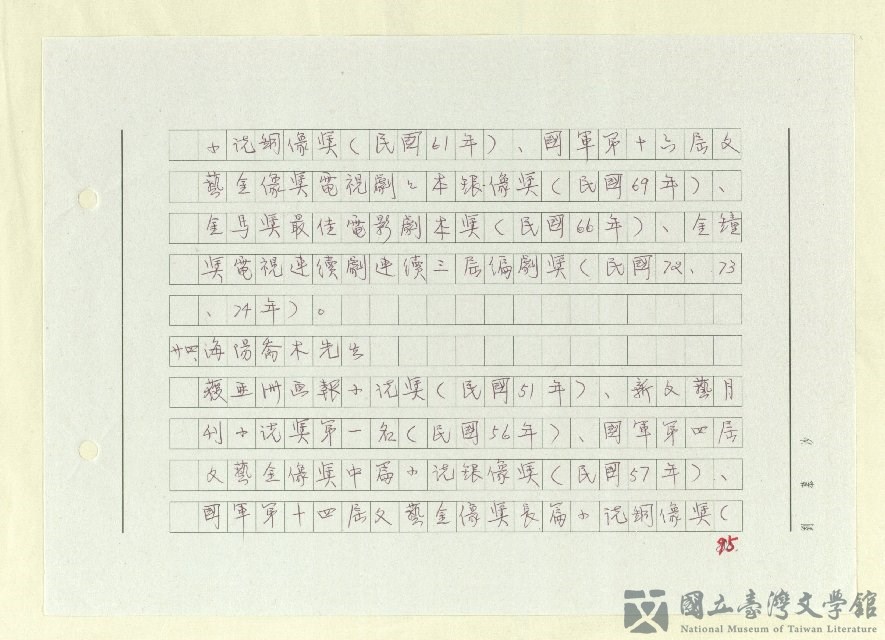 小說銅像獎(民國61年)、國軍第十六屆文
藝金像獎電視劇之本銀像獎(民國69年)、
金馬獎最佳電影劇本獎(民國66年)、金鐘
獎電視連續劇連續三屆編劇獎(民國72、73
、74年)。
廿四、海陽喬木先生
獲亞洲画報小說獎(民國51年)、新文藝月
刊小說獎第一名(民國56年)、國軍第四屆
文藝金像獎中篇小說銀像獎(民國57年)、
國軍第十四屆文藝金像獎長篇小說銅像獎(
95.
國立臺灣文學館
National Museum of Taiwan Literature